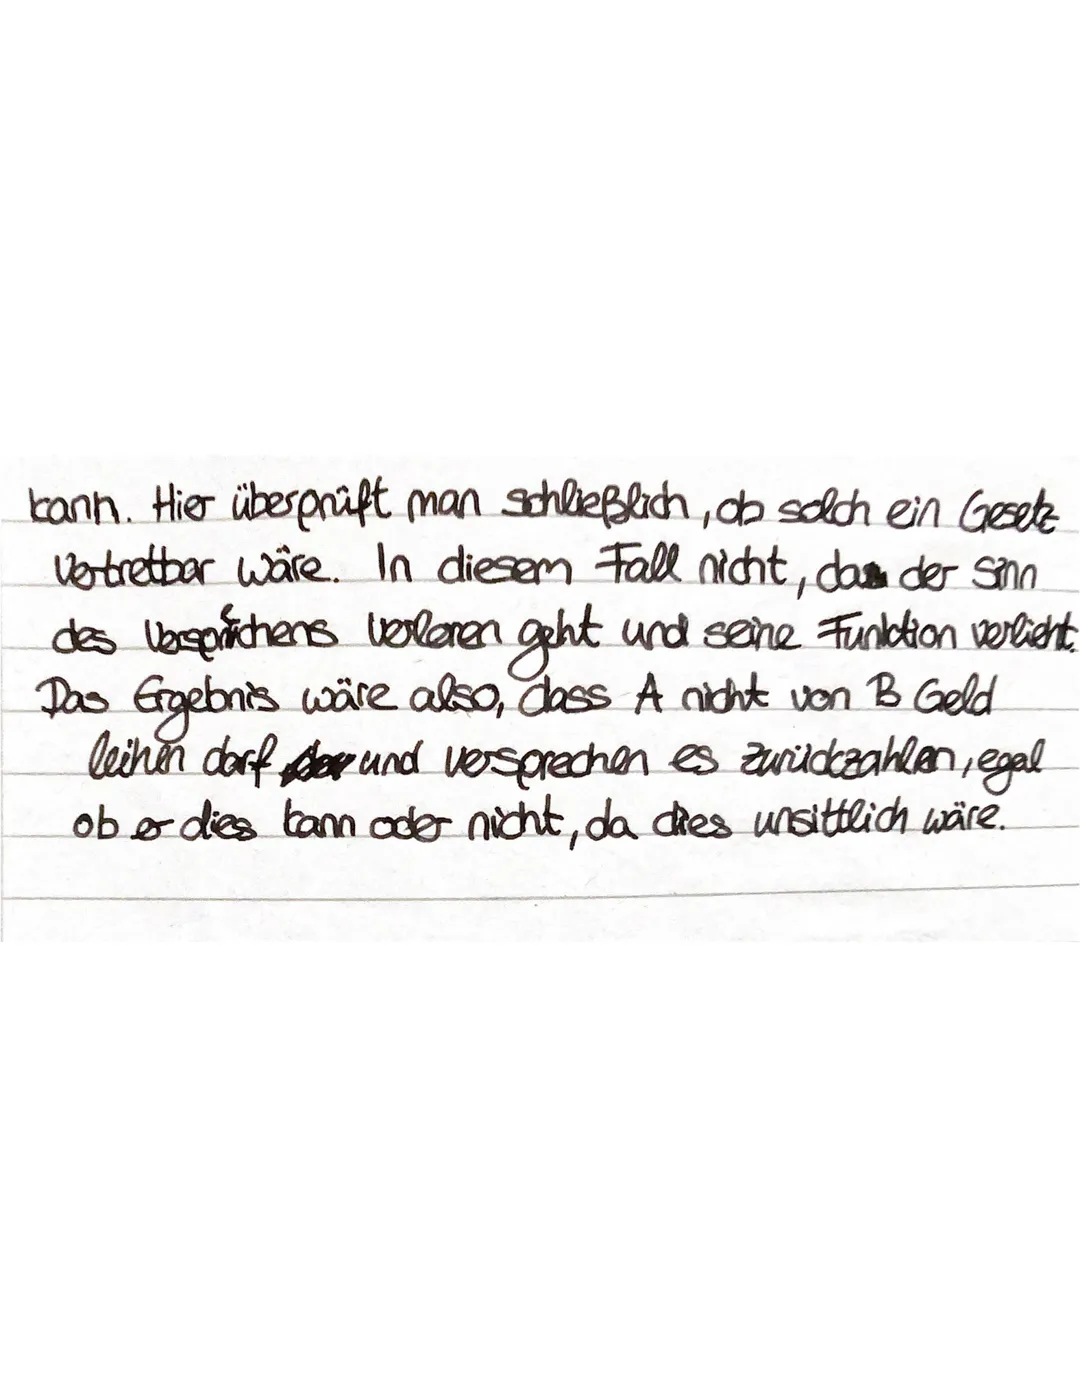 kann. Hier überprüft man schließlich, ob solch ein Gesetz
vertretbar wäre. In diesem Fall nicht, da der Sinn
des Versprechens verloren geht und seine Funktion verlieht.
Das Ergebnis wäre also, dass A nicht von B Geld
leihen darf und versprechen es zurückzahlen, egal
ob er dies kann oder nicht, da dies unsittlich wäre.